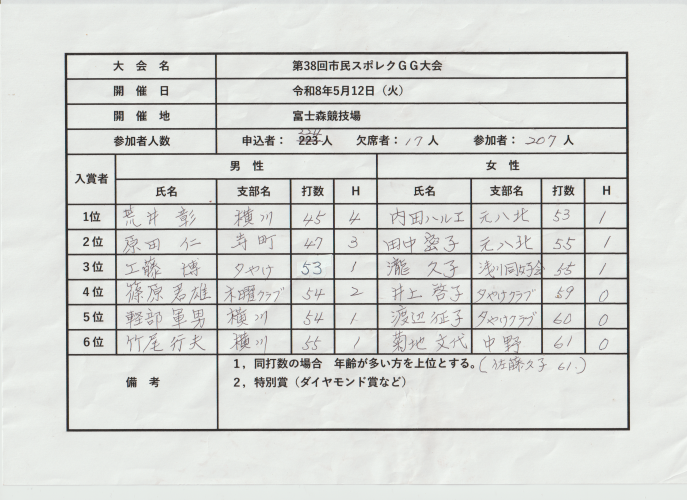 大会名 第38回市民スポレクGG大会
開催日 令和8年5月12日（火）
開催地 富士森競技場
参加者人数 申込者： 223 224 人 欠席者： 17 人 参加者： 207 人
入賞者 男性 女性
氏名 支部名 打数 H 氏名 支部名 打数 H
1位 荒井 彰 横川 45 4 内田ハルエ 元八北 53 1
2位 原田 仁 寺町 47 3 田中 蜜子 元八北 55 1
3位 工藤 博 夕やけ 53 1 瀧 久子 浅川同好会 55 1
4位 篠原 君雄 木曜クラブ 54 2 井上 啓子 夕やけクラブ 59 0
5位 軽部 軍男 横川 54 1 渡辺 征子 夕やけクラブ 60 0
6位 竹尾 行夫 横川 55 1 菊地 文代 中野 61 0
備考 1，同打数の場合 年齢が多い方を上位とする。（佐藤久子 61.）
2，特別賞（ダイヤモンド賞など）